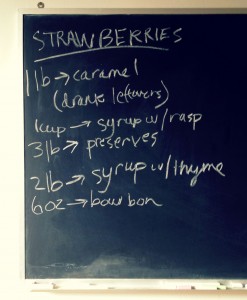 STRAWBERRIES
1 lb → caramel
(drank leftovers)
1 cup → syrup w/ rasp
3 lb → preserves
2 lb → syrup w/ thyme
6 oz → bourbon